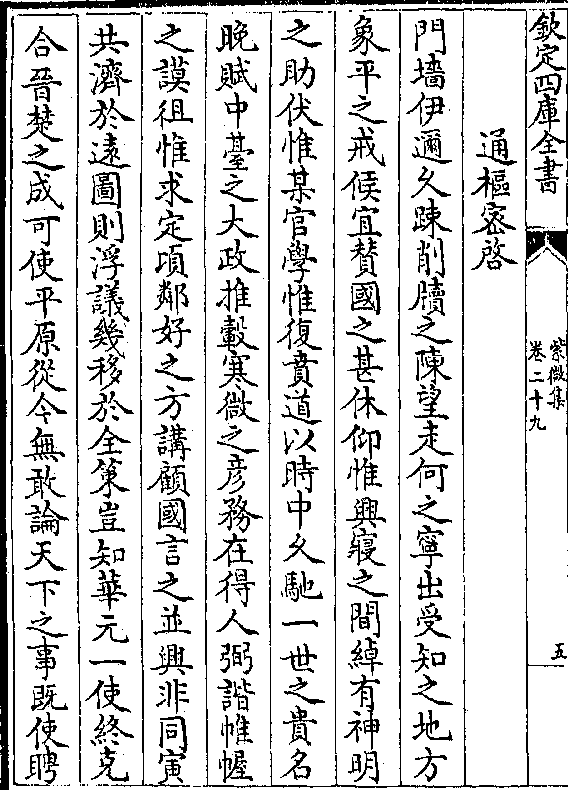 欽定四庫全書
紫微集
卷二十九
五
通樞密啓
門墻伊邇久疎削牘之陳望走何之寧出受知之地方
象平之戒候宜賛國之甚休仰惟興寢之間綽有神明
之助伏惟某官學惟復賁道以時中久馳一世之貴名
晚賦中臺之大政推轂寒微之彦務在得人弼諧帷幄
之謨徂惟求定頃鄰好之方講顧國言之並興非同寅
共濟於遠圖則浮議幾移於全策豈知華元一使終克
合晉楚之成可使平原從今無敢論天下之事既使聘